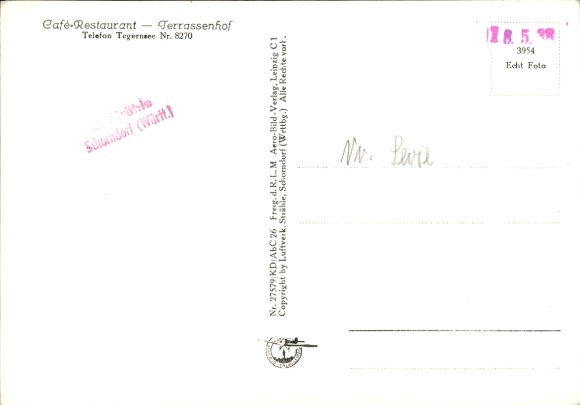 Café-Restaurant — Terrassenhof
Telefon Tegernsee Nr. 8270
8. 5. 38
3954
Echt Foto
Schorndorf (Württ.)
Nr. 27579/KD/AbC 26 Freig. d. R. L. M Aero-Bild-Verlag, Leipzig C 1
Copyright by Luftverk. Strähle, Schorndorf (Wrttbg.) Alle Rechte vorb.